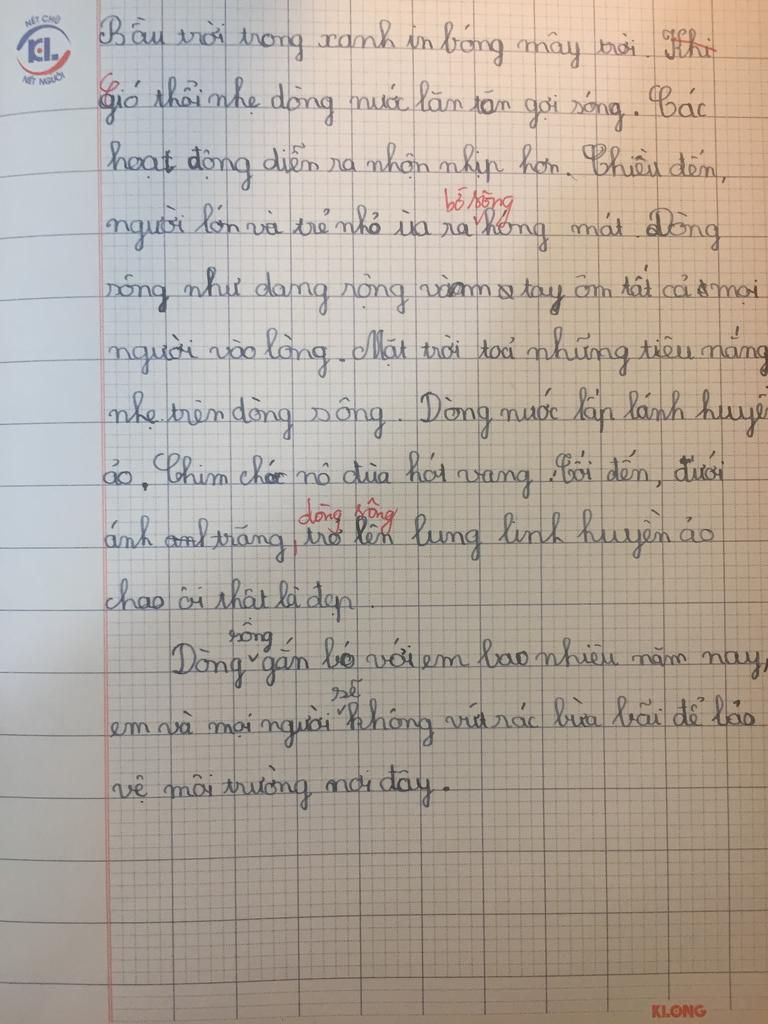 NÉT CHỮ
KL
NẾT NGƯỜI
Bầu trời trong xanh in bóng mây trời. Khi
Gió thổi nhẹ dòng nước lăn tăn gợi sóng. Các
hoạt động diễn ra nhộn nhịp hơn. Chiều đến,
bờ sông
người lớn và trẻ nhỏ ùa ra hóng mát. Dòng
sông như dang rộng vòng tay ôm tất cả mọi
người vào lòng. Mặt trời toả những tiêu nắng
nhẹ trên dòng sông. Dòng nước lấp lánh huyề
ảo. Chim chóc nô đùa hót vang. Tối đến, dưới
dòng sông
ánh trăng, trở lên lung linh huyền ảo
chao ôi thật là đẹp.
sông
Dòng gắn bó với em bao nhiêu năm nay,
sẽ
em và mọi người không vứt rác bừa bãi để bảo
vệ môi trường nơi đây.
KLONG